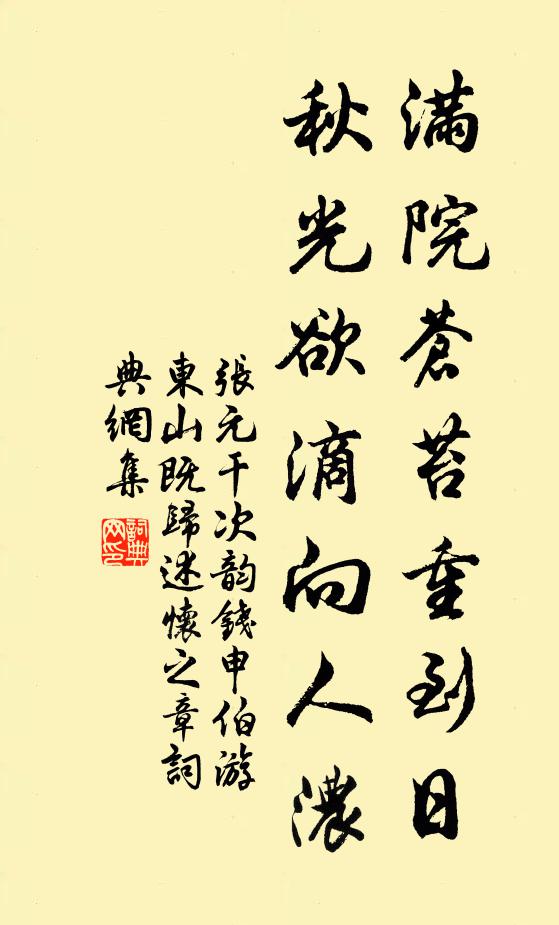 滿院蒼苔重到日
秋光欲滴向人濃
張元干次韵錢申伯游
東山既歸述懷之章詞
典網集
詞典
网印